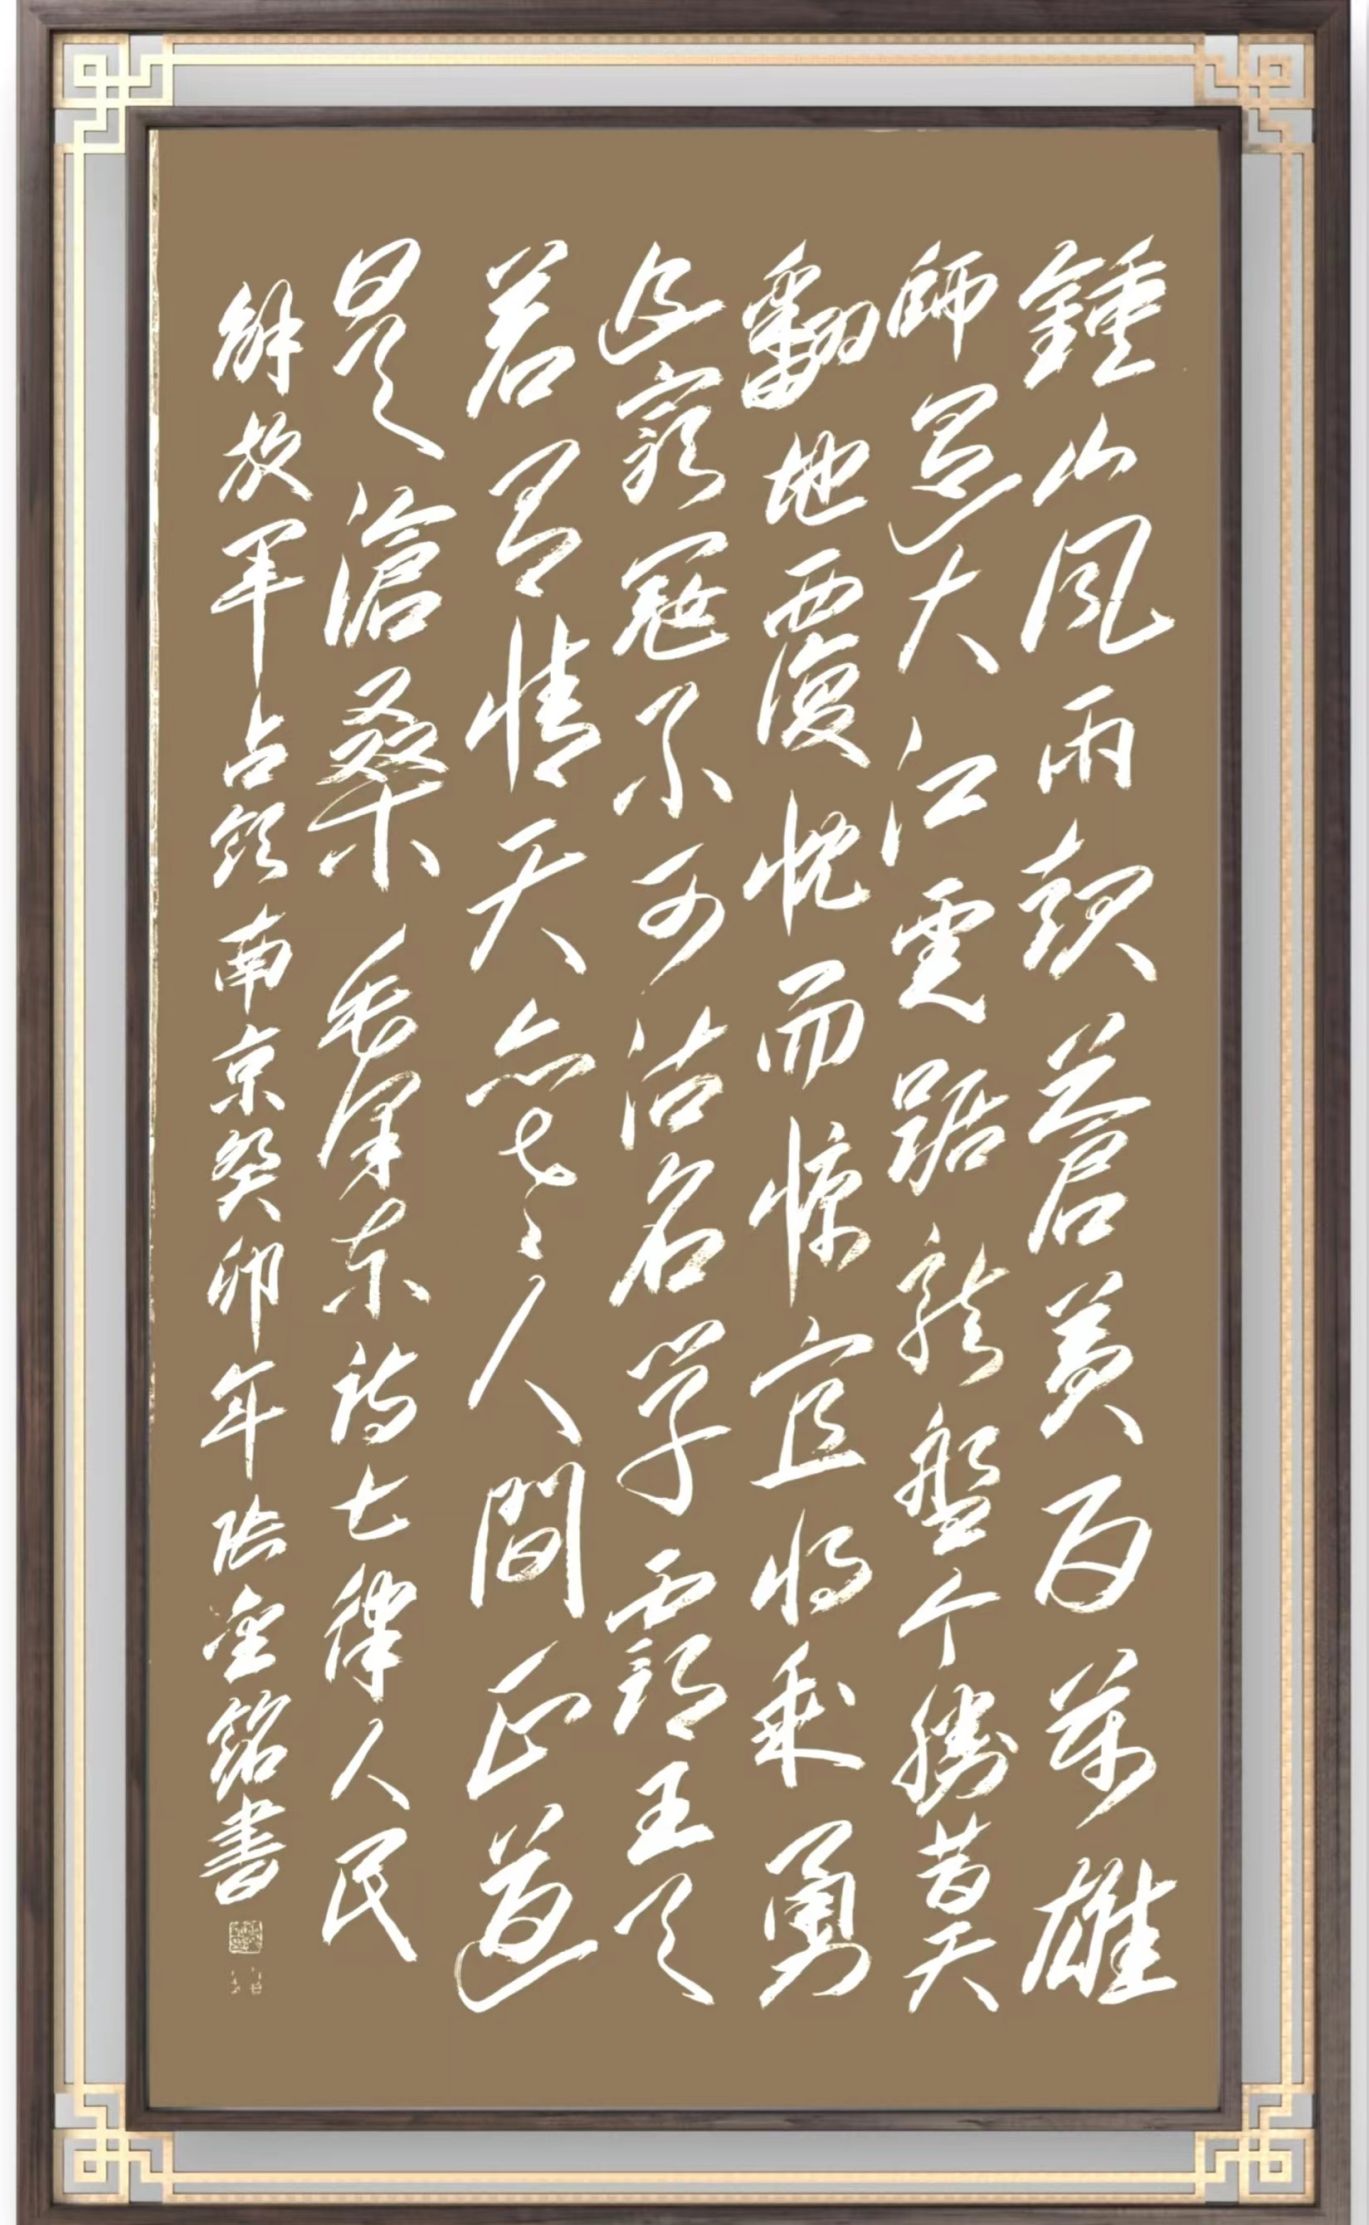 鍾山風雨起蒼黃百萬雄
師過大江虎踞龍盤今勝昔天
翻地覆慨而慷宜將剩勇
追窮寇不可沽名學霸王天
若有情天亦老人間正道
是滄桑 毛澤東詩七律人民
解放軍占领南京癸卯年張金銘書